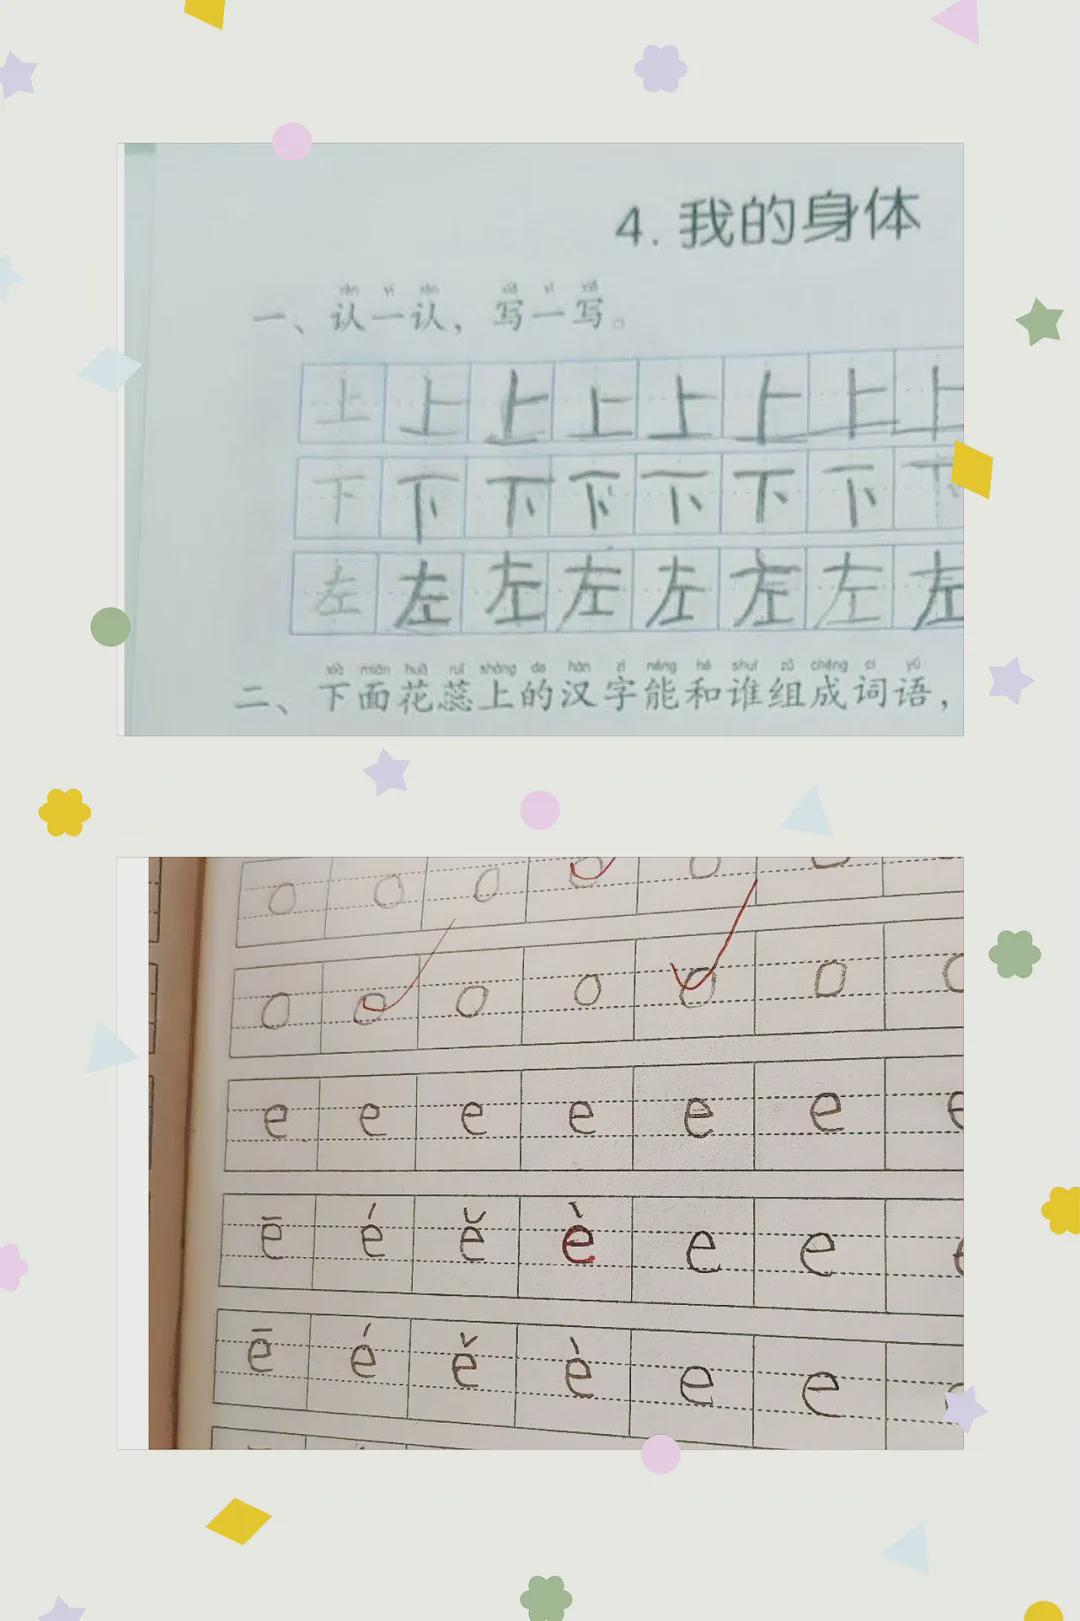 4. 我的身体
rèn yi rèn xiě yi xiě
一、认一认，写一写。
上 上 上 上 上 上 上 上
下 下 下 下 下 下 下 下
左 左 左 左 左 左 左 左
xià miàn huā ruǐ shàng de hàn zì néng hé shuí zǔ chéng cí yǔ
二、下面花蕊上的汉字能和谁组成词语，
o o o o o o
o o o o o o o
e e e e e e e
ē é ě è e e
ē é ě è e e